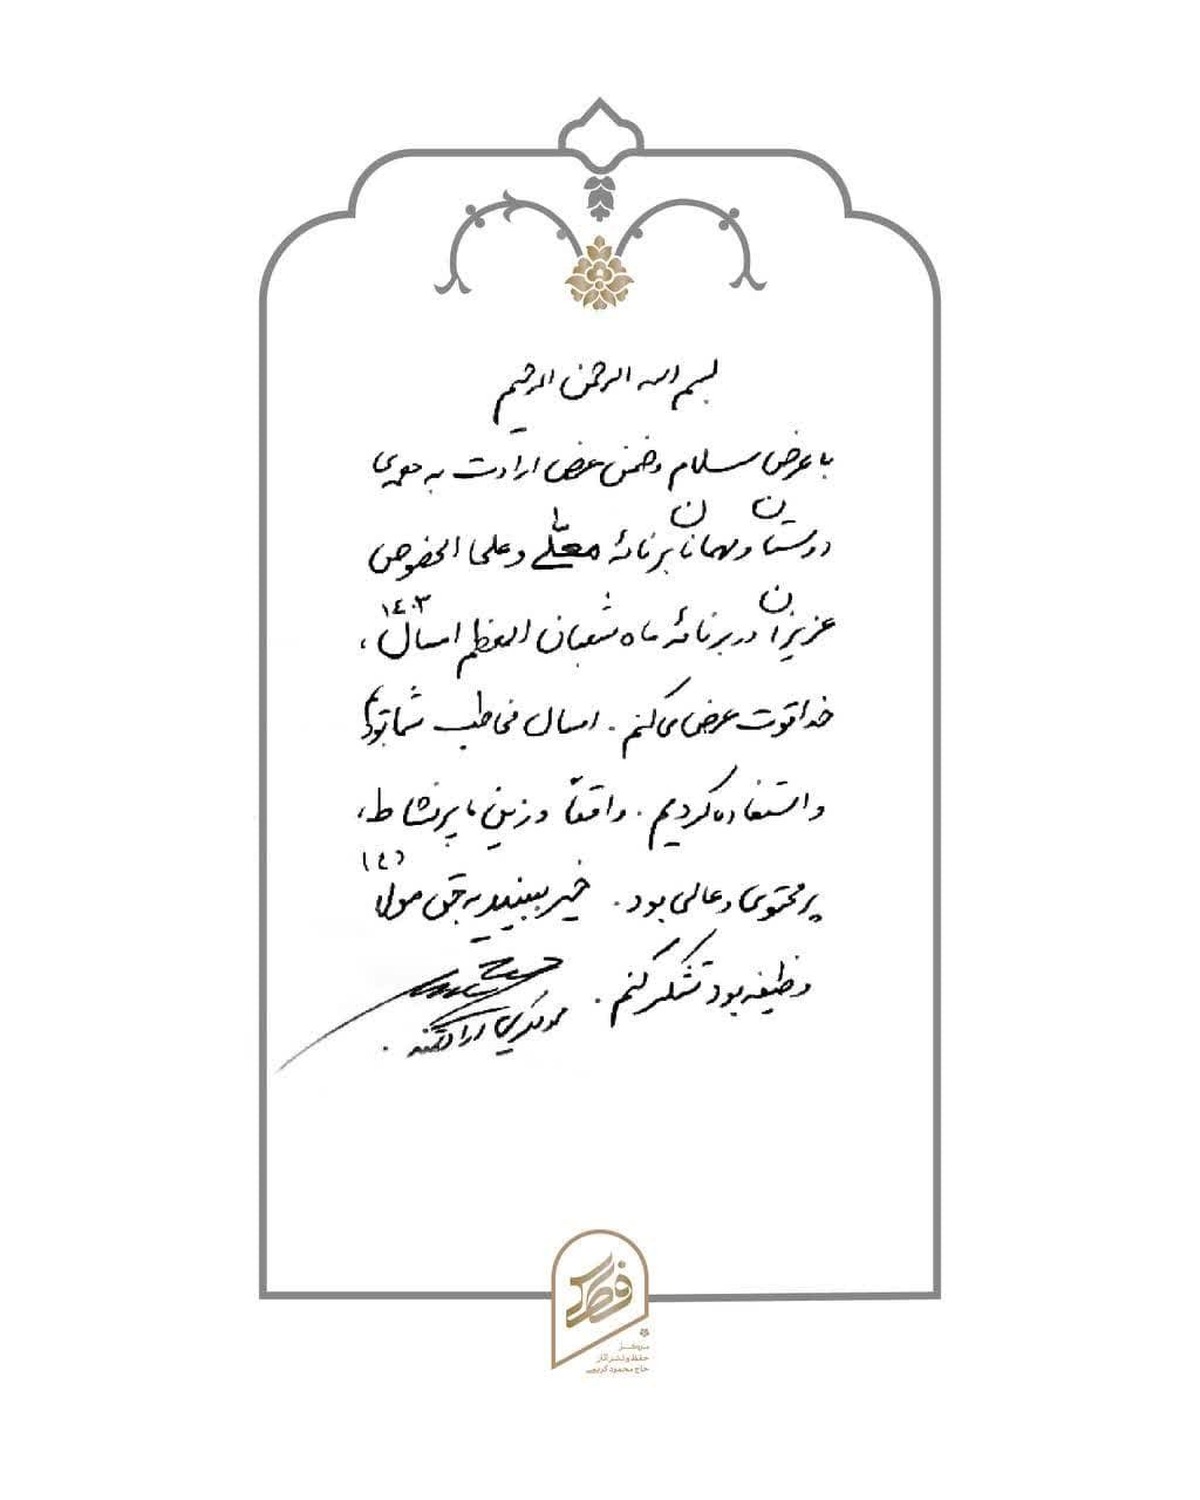 بسم الله الرحمن الرحیم
با عرض سلام و ضمن عرض ارادت به همه‌ی
دوستان و مهمانان برنامهٔ معلّی و علی الخصوص
عزیزان در برنامهٔ ماه شعبان المعظم امسال ۱۴۰۳،
خداقوت عرض می‌کنم. امسال مخاطب شما بودیم
و استفاده کردیم. واقعاً وزین، پرنشاط،
پر محتوی و عالی بود. خیر ببینید به حق مولا (ع)
وظیفه بود تشکر کنم.
مرکز
حفظ و نشر آثار
حاج محمود کریمی